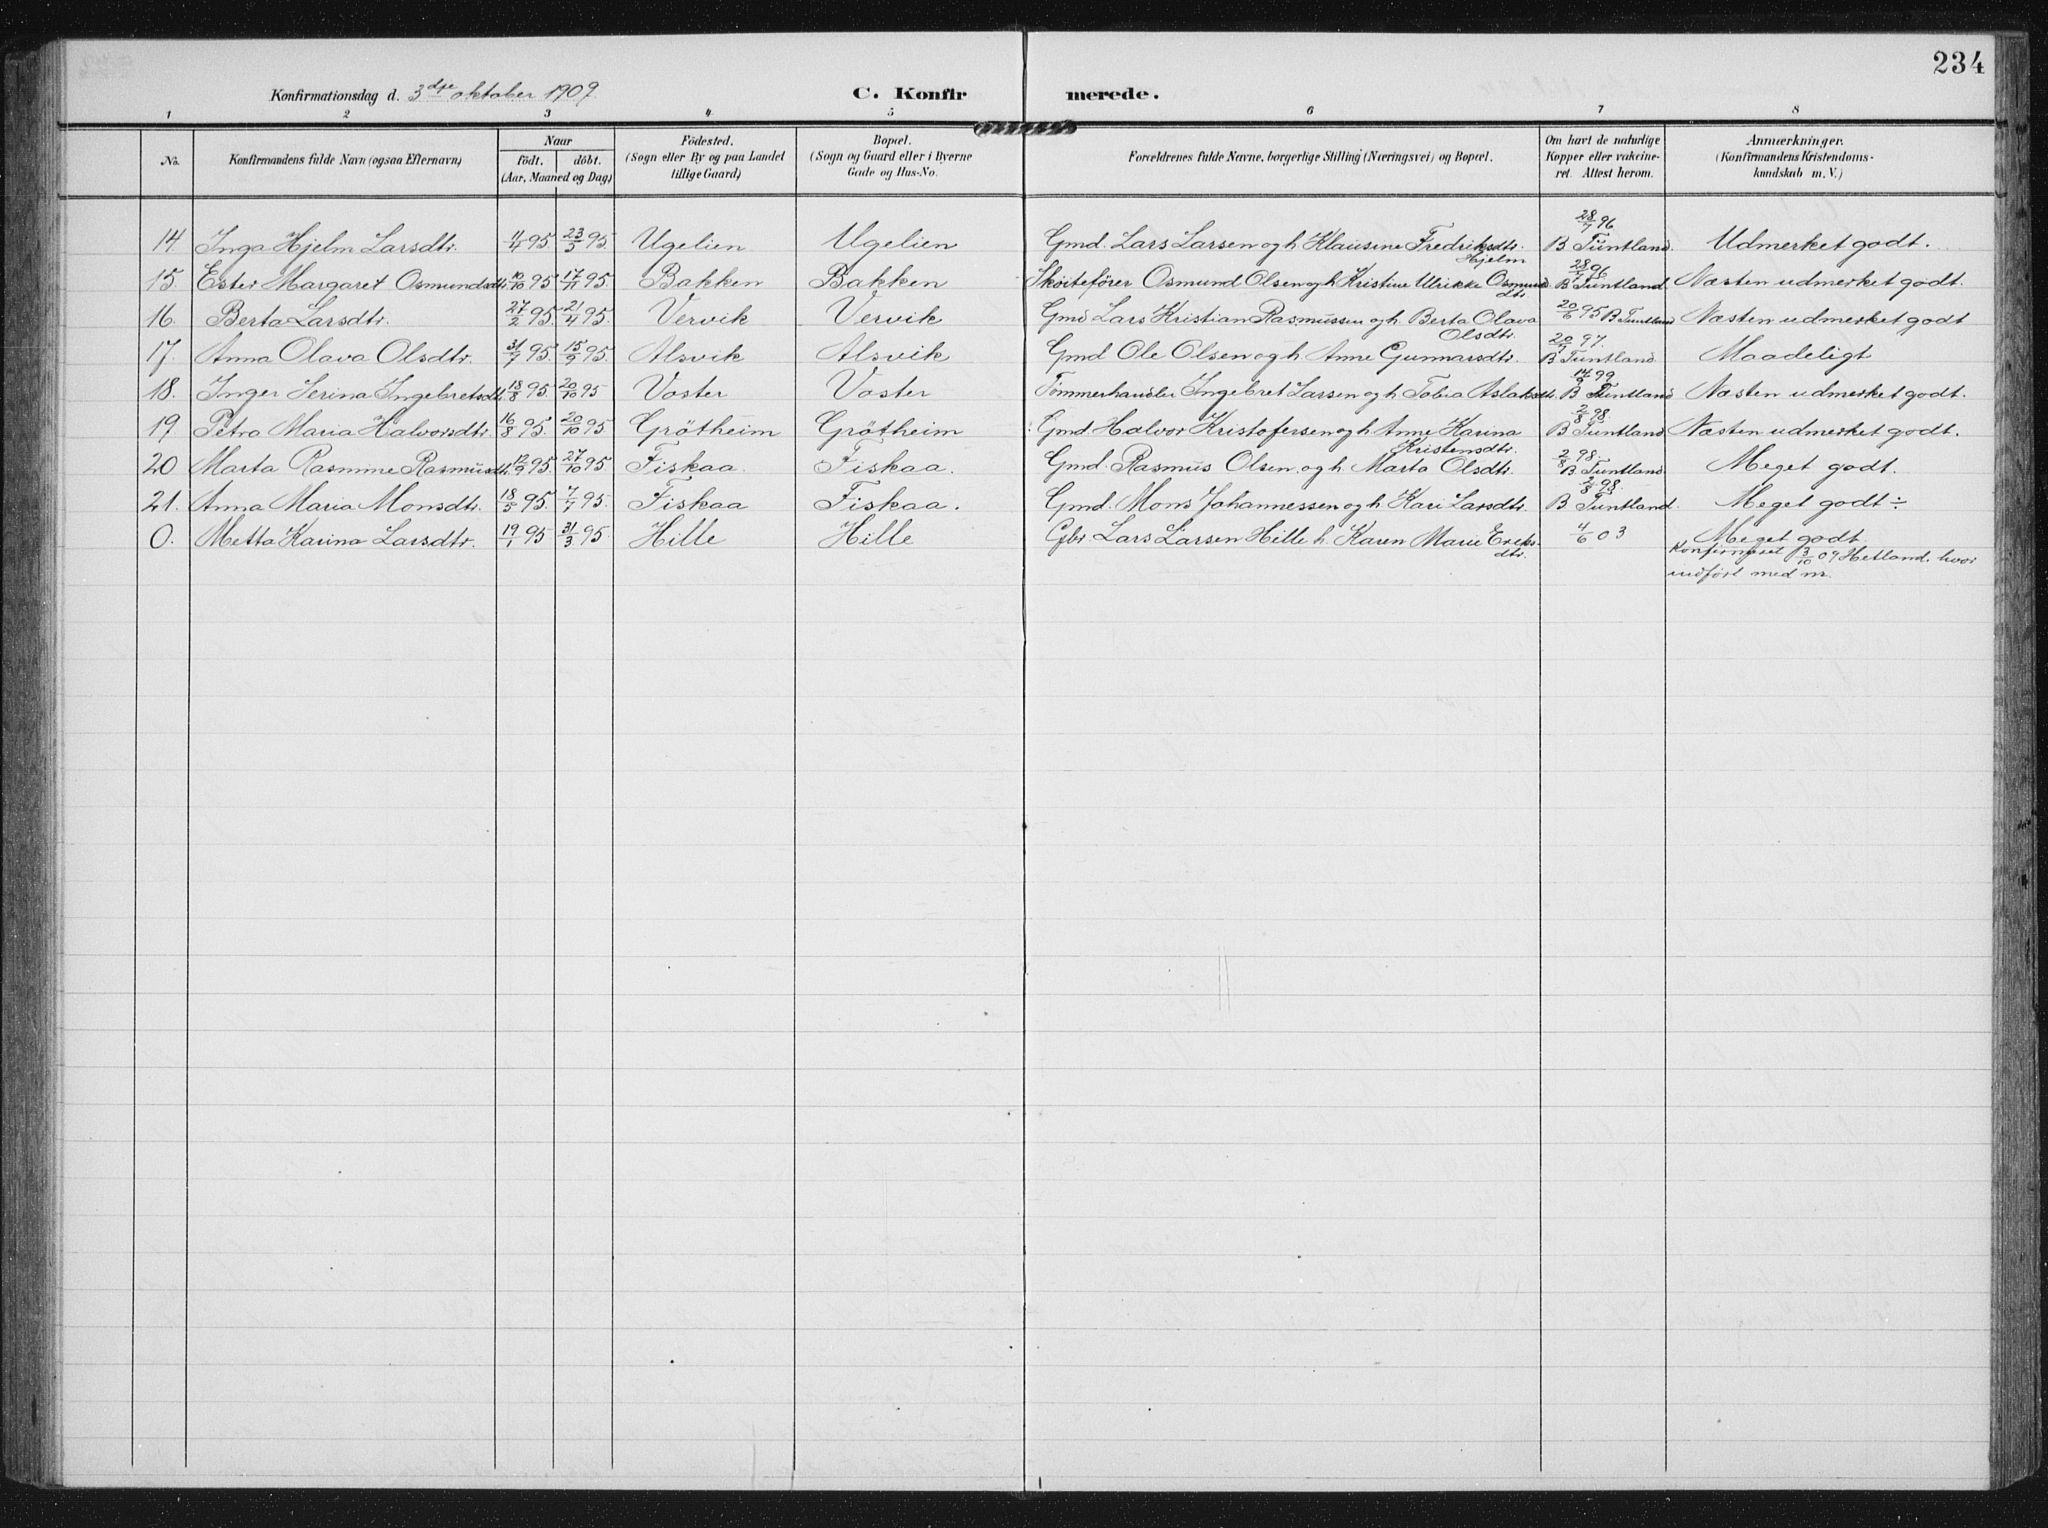 234
Konfirmationsdag d. 3dje oktober 1909.
C. Konfirmerede.
1 2 3 4 5 6 7 8
No. Konfirmandens fulde Navn (ogsaa Efternavn) Naar födt. döbt. (Aar, Maaned og Dag) Födested. (Sogn eller By og paa Landet tillige Gaard) Bopæl. (Sogn og Gaard eller i Byerne Gade og Hus-No. Forældrenes fulde Navne, borgerlige Stilling (Næringsvei) og Bopæl. Om havt de naturlige Kopper eller vakcineret. Attest herom. Anmærkninger. (Konfirmandens Kristendomskundskab m. V.)
14. Inga Hjelm Larsdtr. 11/4 95 23/5 95. Ugelien Ugelien Gmd. Lars Larsen og h. Klausine Fredriksdtr. Hjelm 28/7 96 B Tuntland Udmerket godt.
15. Ester Margaret Osmundsdtr. 10/10 95 17/11 95. Bakken Bakken Skoitefører Osmund Olsen og h Kristine Ulrikke Osmundsdtr 28/7 96 B Tuntland. Næsten udmerket godt.
16. Berta Larsdtr. 27/2 95. 21/4 95. Vervik Vervik Gmd Lars Kristian Rasmussen og h. Berta Olava Olsdtr. 20/6 95 B Tuntland Næsten udmerket godt
17. Anna Olava Olsdtr. 31/7 95. 15/9 95. Alsvik Alsvik Gmd Ole Olsen og h Anne Gunnarsdtr. 20/7 97. B Tuntland Maadeligt
18. Inger Serina Ingebretsdtr. 18/8 95. 20/10 95 Vaster Vaster Tømmerhandler Ingebret Larsen og h Tobia Aslaksdtr. 14/9 99 B Tuntland Næsten udmerket godt.
19 Petra Maria Halvorsdtr. 16/8 95. 20/10 95 Grötheim Grötheim Gmd. Halvor Kristofersen og h Anne Karina Kristensdtr. 2/8 98. B Tuntland Næsten udmerket godt.
20 Marta Rasmine Rasmusdtr. 12/9 95. 27/10 95 Fiskaa. Fiskaa. Gmd. Rasmus Olsen og h Marta Olsdtr. 2/8 98. B Tuntland Meget godt.
21. Anna Maria Monsdtr. 18/5 95. 7/7 95. Fiskaa Fiskaa. Gmd. Mons Johannessen og h Kari Larsdtr. 2/8 98. B Tuntland. Meget godt ÷
0. Metta Karina Larsdtr. 19/1 95 31/3 95. Hille Hille Gbr Lars Larsen Hille h. Karen Marie Eriksdtr. 4/6 03 Meget godt
Konfirmeret 3/10 09 Hetland. hvor
indført med nr.